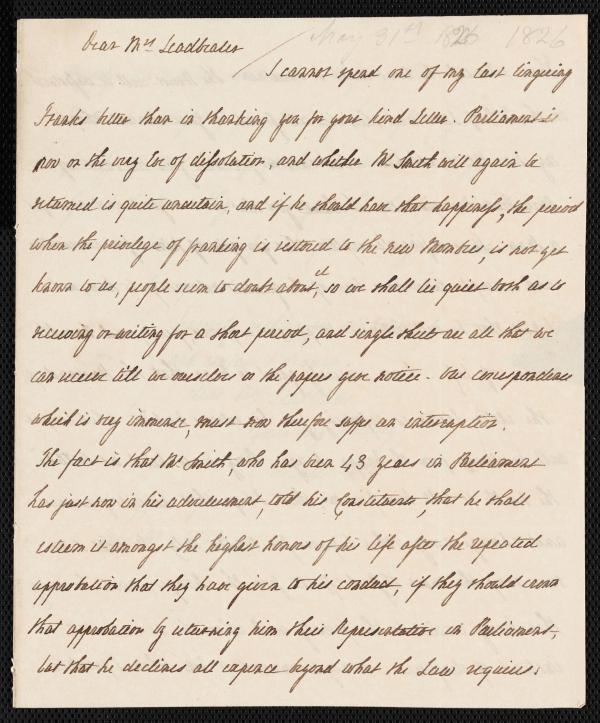 May 31st 1826 1826
Dear Mrs Leadbeater
I cannot spend one of my last lingering
Franks better than in thanking you for your kind Letter. Parliament is
now on the very Eve of dissolution, and whether Mr Smith will again be
returned is quite uncertain, and if he should have that happiness, the period
when the privilege of franking is restored to the new Member, is not yet
known to us, people seem to doubt about it, so we shall lie quiet both as to
receiving or writing for a short period, and single sheets are all that we
can receive till we ourselves or the papers give notice. Our correspondence
which is very immense, must now therefore suffer an interruption.
The fact is that Mr Smith, who has been 43 years in Parliament
has just now in his advertisement, told his Constituents, that he shall
esteem it amongst the highest honors of his life after the repeated
approbation that they have given to his conduct, if they should crown
that approbation by returning him their Representative in Parliament,
but that he declines all expence beyond what the Law requires.